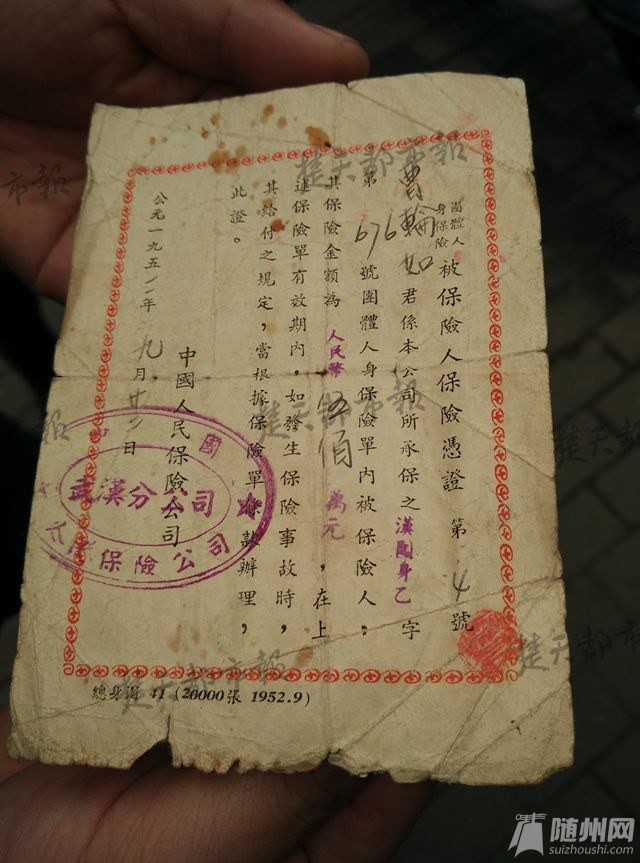 團體人身保險被保險人保險憑證 第4號
曹輪如君係本公司所承保之漢團身乙字
第676號團體人身保險單內被保險人，
其保險金額為人民幣伍佰萬元，在上
述保險單有效期內，如發生保險事故時，
其給付之規定，當根據保險單條款辦理，
此證。
中國人民保險公司
公元一九五二年九月廿二日
武漢分公司
保險公司
總身團 41 (20000張 1952.9)
楚天都市報
市報
楚天都市報
楚天都市報
楚天都市報
随州网
suizhoushi.com